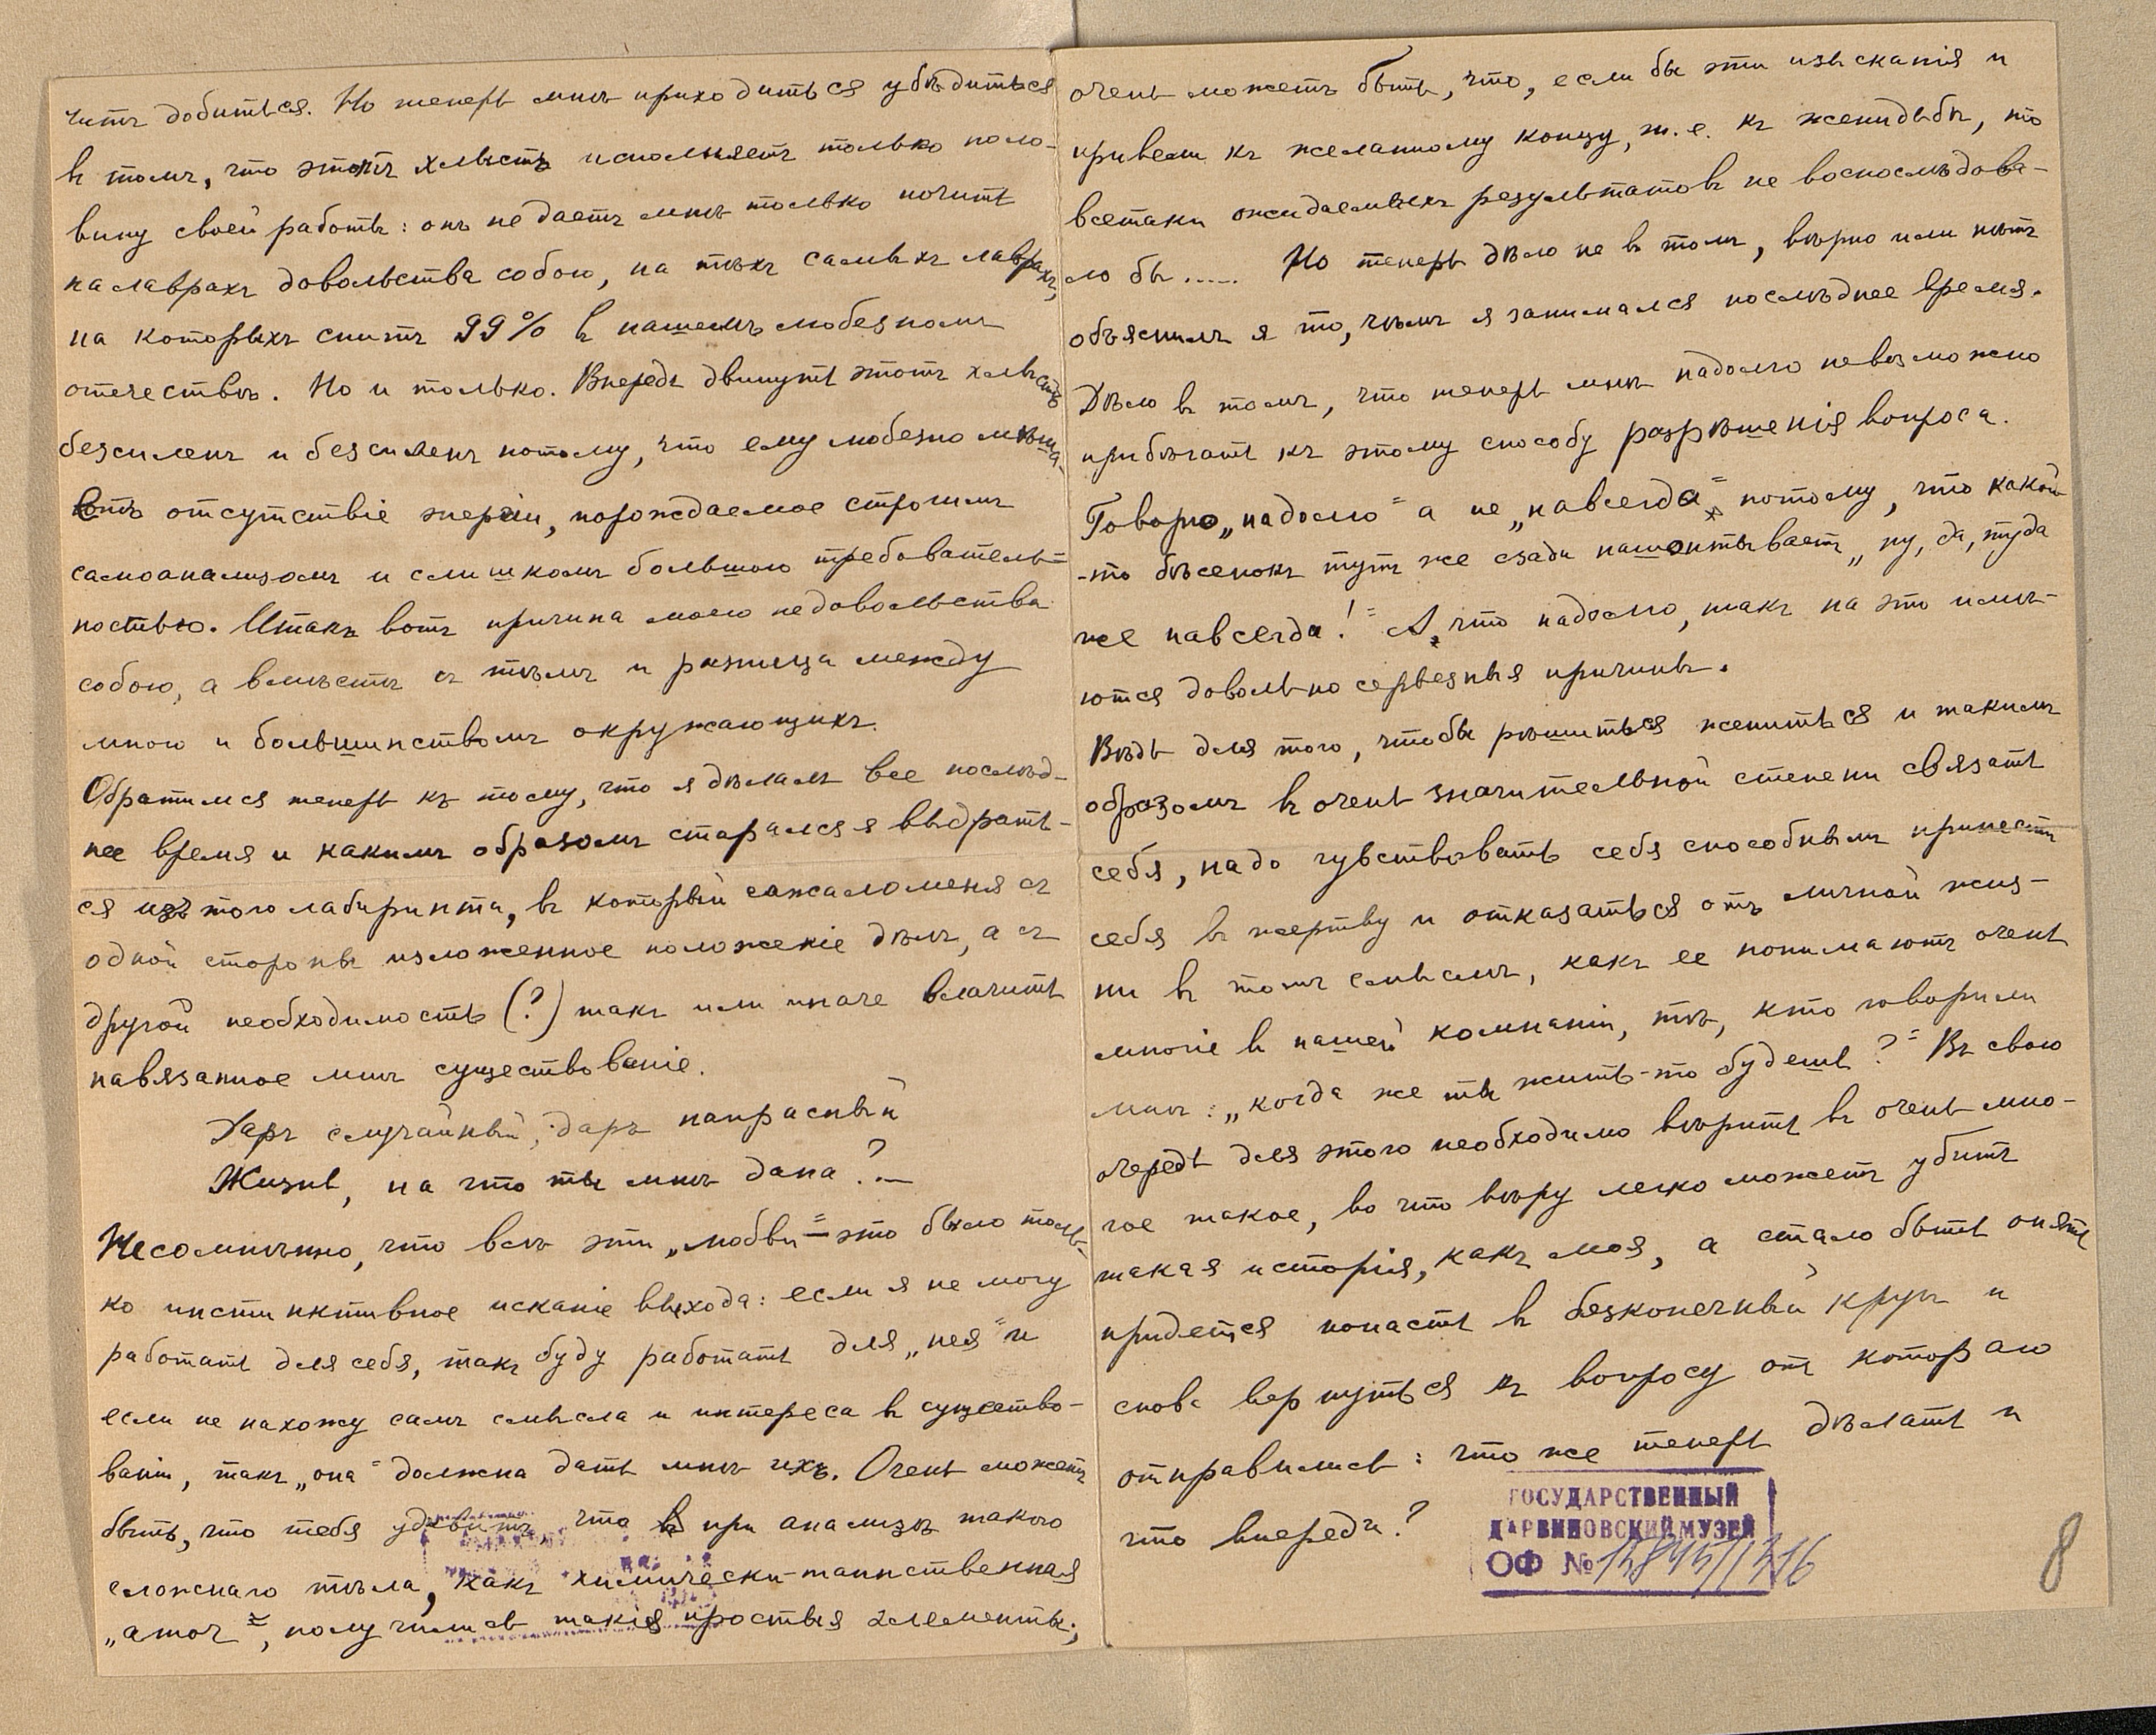 читъ добиться. Но теперь мнѣ приходиться убѣдиться
въ томъ, что этотъ хлыстъ исполняетъ только поло-
вину своей работы: онъ не даетъ мнѣ только почить
на лаврахъ довольства собою, на тѣхъ самыхъ лаврахъ,
на которыхъ спитъ 99% въ нашемъ любезномъ
отечествѣ. Но и только. Впередъ двинуть этотъ хлыстъ
безсиленъ и безсиленъ потому, что ему любезно мѣша-
етъ отсутствіе энергіи, порождаемое строгимъ
самоанализомъ и слишкомъ большою требователь-
ностью. Итакъ вотъ причина моего недовольства
собою, а вмѣстѣ съ тѣмъ и разница между
мною и большинствомъ окружающихъ.
Обратимся теперь къ тому, что я дѣлалъ все послѣд-
нее время и какимъ образомъ старался я выдрать-
ся изъ того лабиринта, въ который сажало меня съ
одной стороны изложенное положеніе дѣлъ, а съ
другой необходимость (?) такъ или иначе влачить
навязанное мнѣ существованіе.
Даръ случайный, даръ напрасный
Жизнь, на что ты мнѣ дана?—
Несомнѣнно, что всѣ эти „любви“ — это было толь-
ко инстинктивное исканіе выхода: если я не могу
работать для себя, такъ буду работать для „нея“ и
если не нахожу самъ смысла и интереса въ существо-
ваніи, такъ „она“ должна дать мнѣ ихъ. Очень можетъ
быть, что тебя удивитъ, что при анализѣ такого
сложнаго тѣла, какъ химически-таинственная
„amor“, получились такія простыя элементы;
очень можетъ быть, что, если бы эти изысканія и
привели къ желанному концу, т. е. къ женидьбѣ, то
всетаки ожидаемыхъ результатовъ не воспослѣдова-
ло бы..... Но теперь дѣло не въ томъ, вѣрно или нѣтъ
объяснилъ я то, чѣмъ я занимался послѣднее время.
Дѣло въ томъ, что теперь мнѣ надолго невозможно
прибѣгать къ этому способу разрѣшенія вопроса.
Говорю „надолго“ а не „навсегда“ потому, что какой-
-то бѣсенокъ тутъ же сзади нашоптываетъ „ну, да, туда
же навсегда!“ А, что надолго, такъ на это имѣ-
ются довольно серьезныя причины.
Вѣдь для того, чтобы рѣшиться жениться и такимъ
образомъ въ очень значительной степени связать
себя, надо чувствовать себя способнымъ принести
себя въ жертву и отказаться отъ личной жиз-
ни въ томъ смыслѣ, какъ ее понимаютъ очень
многіе въ нашей компаніи, тѣ, кто говорили
мнѣ: „когда же ты жить-то будешь?“ Въ свою
очередь для этого необходимо вѣрить въ очень мно-
гое такое, во что вѣру легко можетъ убить
такая исторія, какъ моя, а стало быть опять
придется попасть въ безконечный кругъ и
снова вернуться къ вопросу отъ котораго
отправились: что же теперь дѣлать и
что впереди?
ГОСУДАРСТВЕННЫЙ
ДАРВИНОВСКИЙ МУЗЕЙ
ОФ №
8